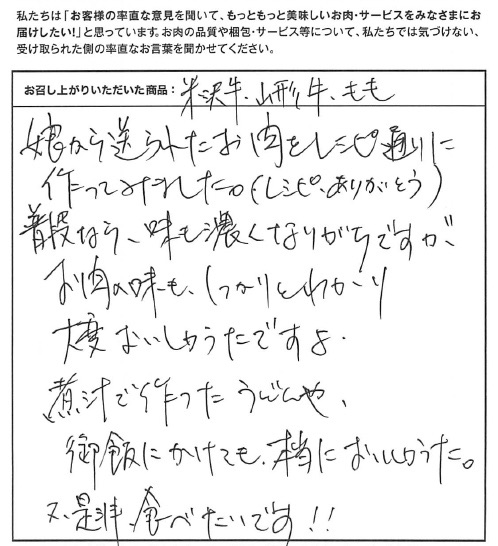 私たちは「お客様の率直な意見を聞いて、もっともっと美味しいお肉・サービスをみなさまにお
届けしたい!」と思っています。お肉の品質や梱包・サービス等について、私たちでは気づけない、
受け取られた側の率直なお言葉を聞かせてください。
お召し上がりいただいた商品： 米沢牛、山形牛、もも
娘から送られたお肉をレシピ通りに
作ってみました。(レシピ、ありがとう)
普段なら、味も濃くなりがちですが、
お肉の味も、しっかりとわかり
大変おいしかったですよ。
煮汁で作ったうどんや、
御飯にかけても、本当においしかった。
又、是非、食べたいです!!